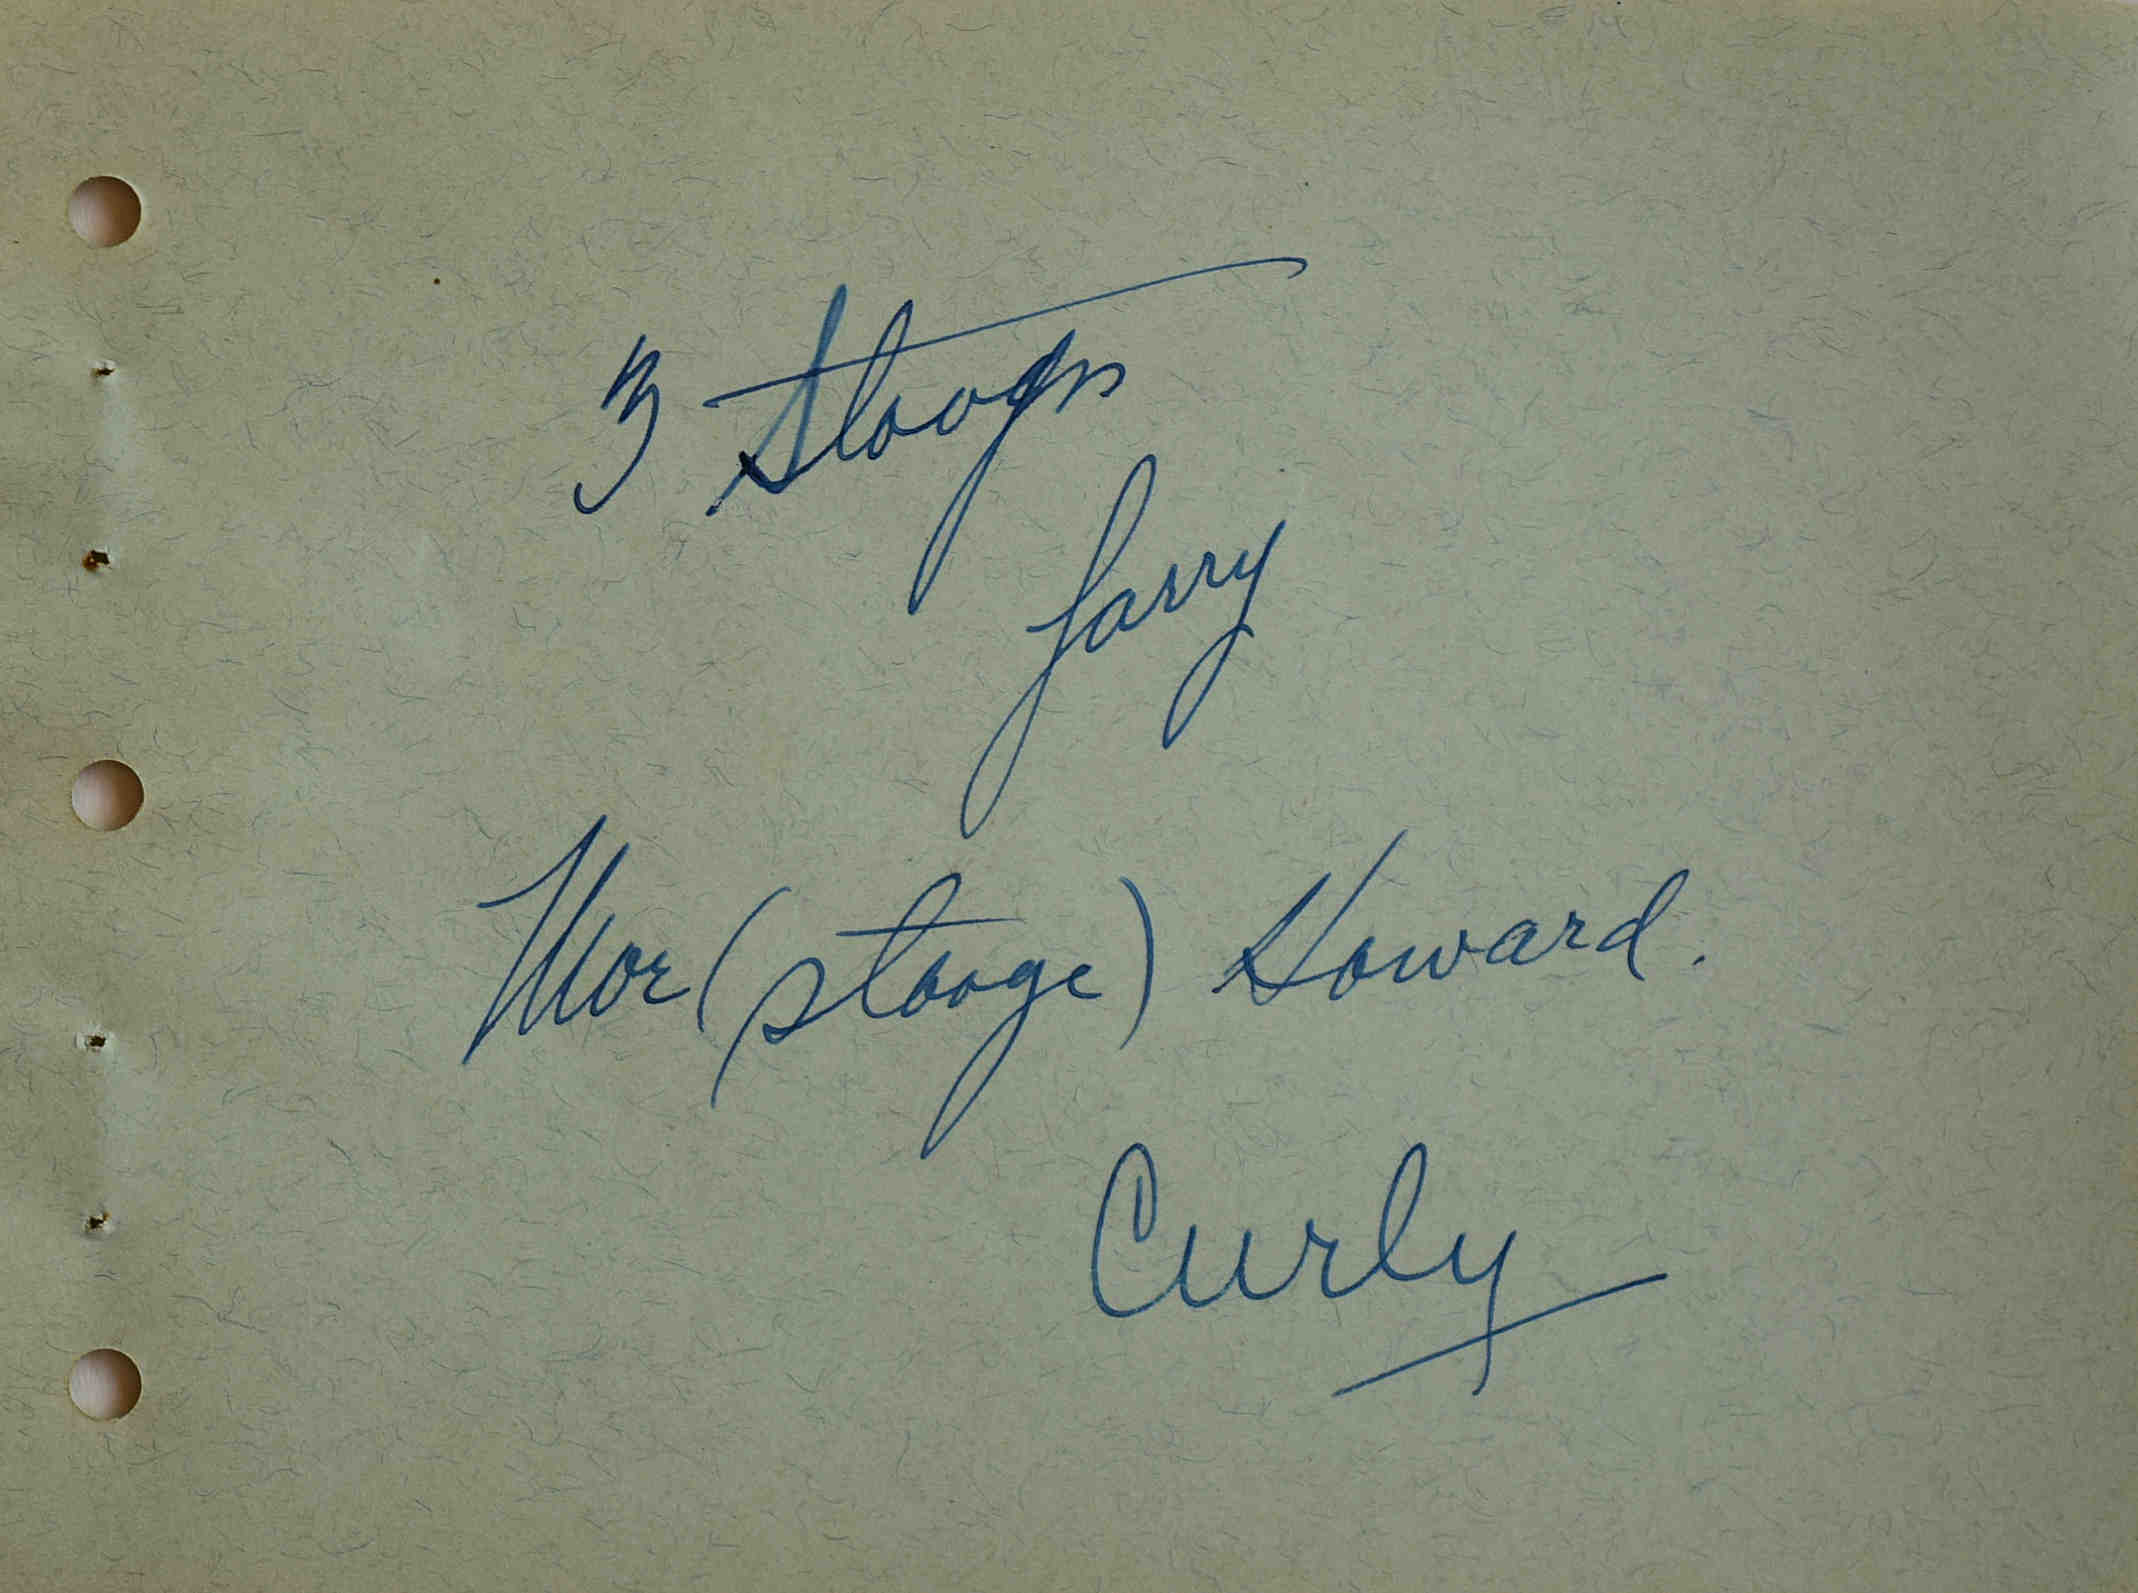 3 Stooges
Larry
Moe (stooge) Howard.
Curly